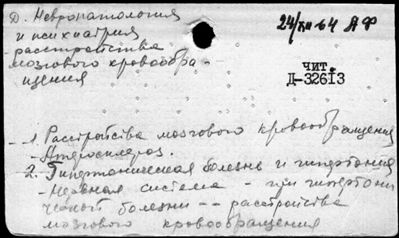 Д. Невропатология
и психиатрия
- расстройства
мозгового кровообра-
щения
24/XII-64 АФ
чит.
Д-32613
1. Расстройства мозгового кровообращения
- Атеросклероз.
2. Гипертоническая болезнь и гипертония
- Нервная система - при гипертони
ческой болезни -- расстройства
мозгового кровообращения